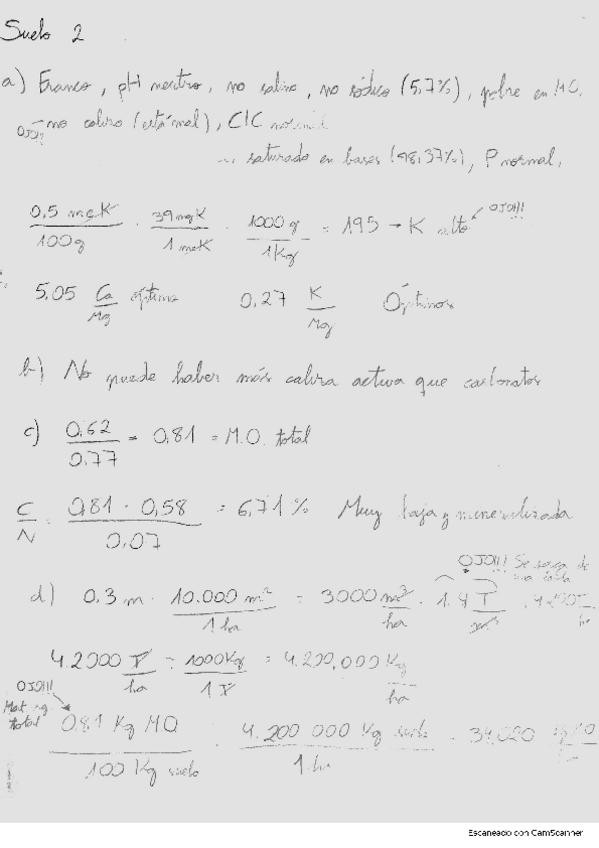 Suelo 2
a) Franco, pH neutro, no salino, no sódico (5,7%), pobre en M.O.
OJO! no calizo (está mal), CIC normal
saturado en bases (98,37%), P normal,
0,5 meqK / 100g · 39mgK / 1 meqK · 1000g / 1Kg = 195 → K alto OJO!!!
5,05 Ca/Mg óptima 0,27 K/Mg Óptimos
b) No puede haber más caliza activa que carbonatos
c) 0,62 / 0,77 = 0,81 = M.O. total
C/N = 0,81 · 0,58 / 0,07 = 6,71 % Muy baja y mineralizada
OJO!!! Se saca de
d) 0,3 m · 10.000 m² / 1 ha = 3000 m³/ha · 1,4 T
4.2000 T/ha = 1000Kg / 1T = 4.200.000 Kg/ha
OJO!!!
Mat. og. total
0,81 Kg MO / 100 Kg suelo · 4.200 000 Kg suelo / 1 ha = 34,020
Escaneado con CamScanner